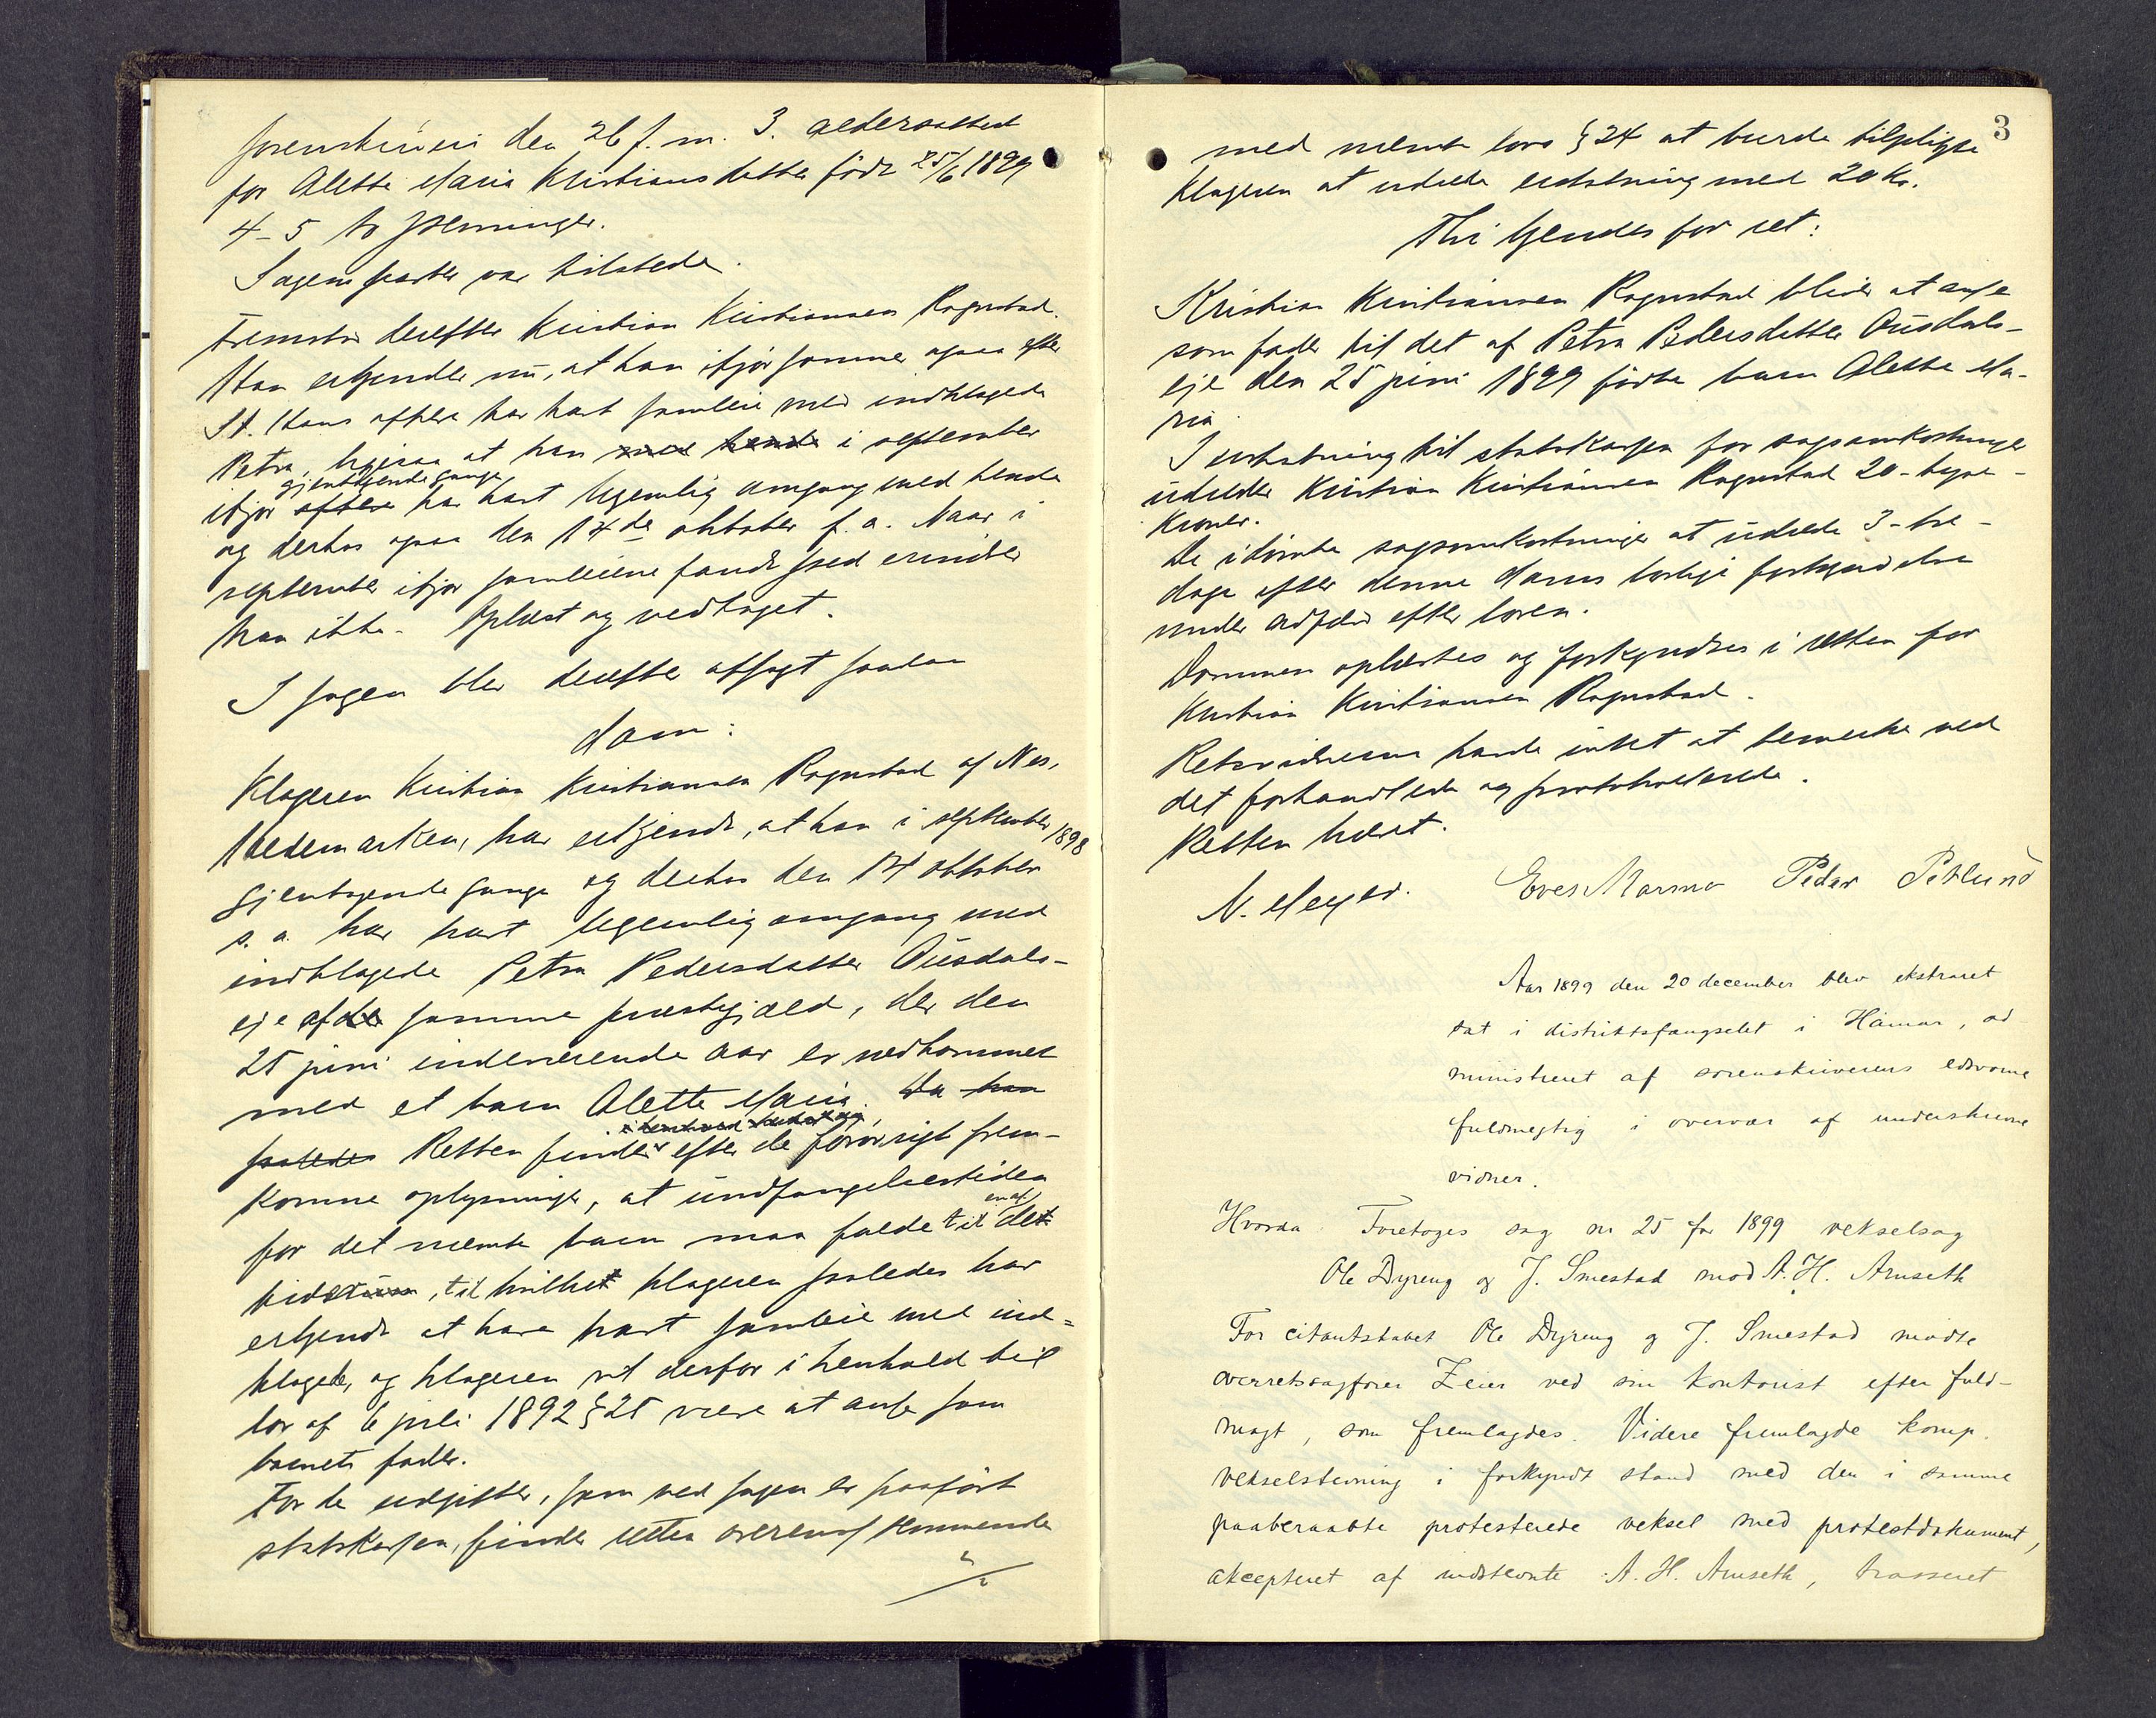 sorenskriveri den 26 f. m. 3. aldersattest
for Alette Maria Kristiansdatter født 25/6 1899
4-5 to
Sagens parter var tilstede.
Fremstod derefter Kristian Kristiansen Rognstad.
Han erkjender nu, at han ifjor sommer ogsaa efter
St. Hans aften har havt samleie med indklagede
Petra, at han med hende i september
gjentagende gange
ifjor oftere har havt legemlig omgang med hende
og derhos ogsaa den 14de oktober f. a. Naar i
september ifjor samleiene fandt sted erindrer
han ikke. Oplæst og vedtaget.
I sagen blev derefter afsagt saadan
dom:
Klageren Kristian Kristiansen Rognstad af Nes,
Hedemarken, har erkjendt, at han i september 1898
gjentagende gange og derhos den 14 oktober
s. a. har havt legemlig omgang med
indklagede Petra Pedersdatter Ousdals-
eje af samme prestegjæld, der den
25 juni indeværende aar er nedkommet
med et barn Alette Maria. Da han
saaledes Retten finder efter de forøvrigt frem-
komne oplysninger, at undfangelsestiden
en af
for det nævnte barn maa falde til det
tidsrum, til hvilket klageren saaledes har
erkjendt at have havt samleie med ind-
klagede, og klageren vil derfor i henhold til
lov af 6 juli 1892 § 25 være at anse som
barnets fader.
For de udgifter, som ved sagen er paaført
statskassen, finder retten overensstemmende
3
med nævnte lovs § 24 at burde tilpligte
Klageren at udrede erstatning med 20 Kr.
Thi kjendes for ret:
Kristian Kristiansen Rognstad bliver at anse
som fader til det af Petra Pedersdatter Ousdals-
eje den 25 juni 1899 fødte barn Alette Ma-
ria
I erstatning til statskassen for sagsomkostninger
udreder Kristian Kristiansen Rognstad 20 - tyve -
Kroner.
De idømte sagsomkostninger at udrede 3 - tre -
dage efter denne doms lovlige forkyndelse
under adfærd efter loven.
Dommen oplæstes og forkyndtes i retten for
Kristian Kristiansen Rognstad.
Retsvidnerne havde intet at bemerke ved
det forhandlede og protokollerede.
Retten hævet.
N. Meyer. Even Marmo Peder Pihlund
Aar 1899 den 20 december blev ekstraret
sat i distriktsfængselet i Hamar, ad
ministreret af sorenskriverens edsvorne
fuldmegtig i overvær af underskrevne
vidner.
Hvorda Foretoges sag nr 25 for 1899 vekselsag
Ole Dyreng og J. Smestad mod A. H. Arnseth
For citantskabet Ole Dyreng og J. Smestad mødte
overretssagfører Zeier ved sin kontorist efter fuld-
magt, som fremlagdes. Videre fremlagde komp.
vekselstevning i forkyndt stand med den i samme
paaberaabte protesterede veksel med protestdokument,
akcepteret af indstevnte A. H. Arnseth, trasseret